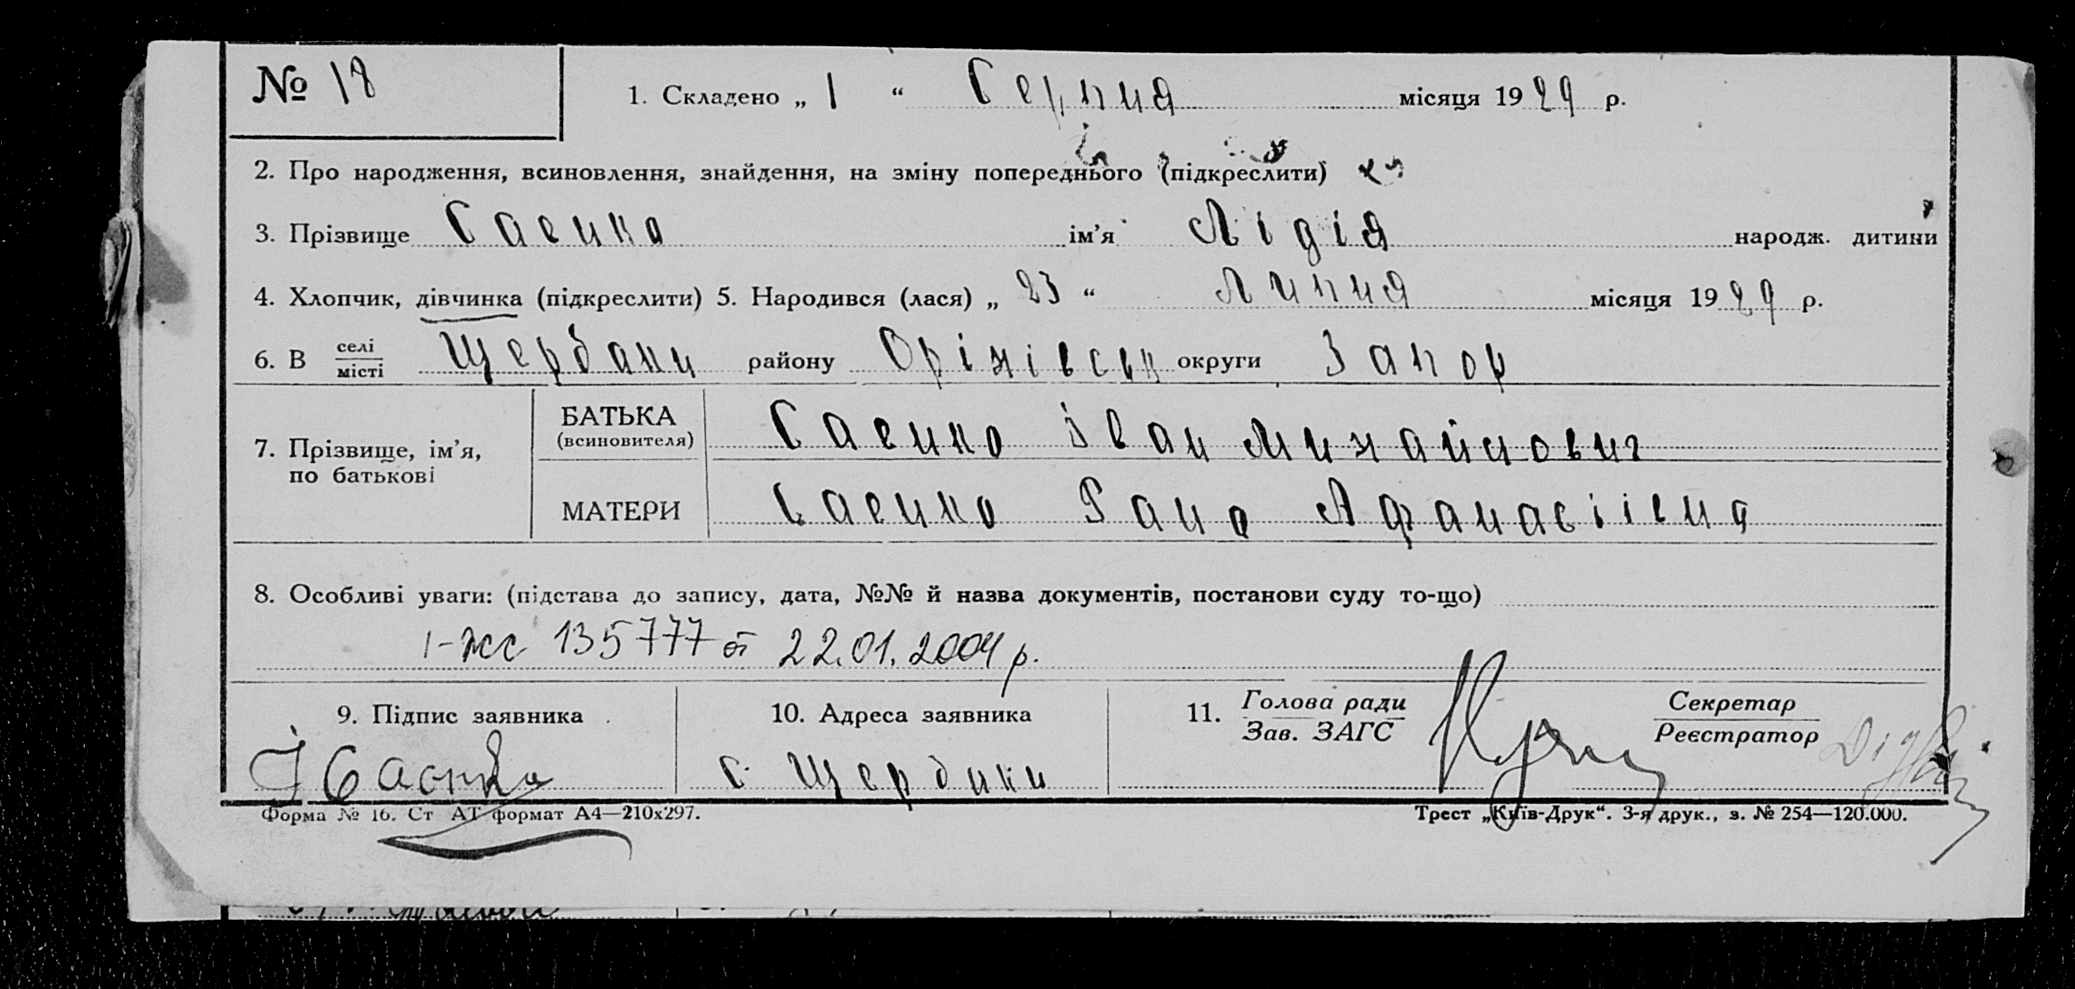 № 18
1. Складено „ 1 “ Серпня місяця 1929 р.
2. Про народження, всиновлення, знайдення, на зміну попереднього (підкреслити)
3. Прізвище Саенко ім’я Лідія народж. дитини
4. Хлопчик, дівчинка (підкреслити) 5. Народився (лася) „ 23 “ Липня місяця 1929 р.
6. В селі місті Щербаки району Оріхівськ округи Запор
7. Прізвище, ім’я, по батькові
БАТЬКА (всиновителя) Саенко Іван Михайлович
МАТЕРИ Саенко Афанасіівна
8. Особливі уваги: (підстава до запису, дата, №№ й назва документів, постанови суду то-що)
I-жс 135777 от 22.01.2004 р.
9. Підпис заявника
10. Адреса заявника
11. Голова ради Зав. ЗАГС
Секретар Реєстратор
с. Щербаки
Форма № 16. Ст АТ формат А4—210х297.
Трест „Київ-Друк“. 3-я друк., з. № 254—120.000.